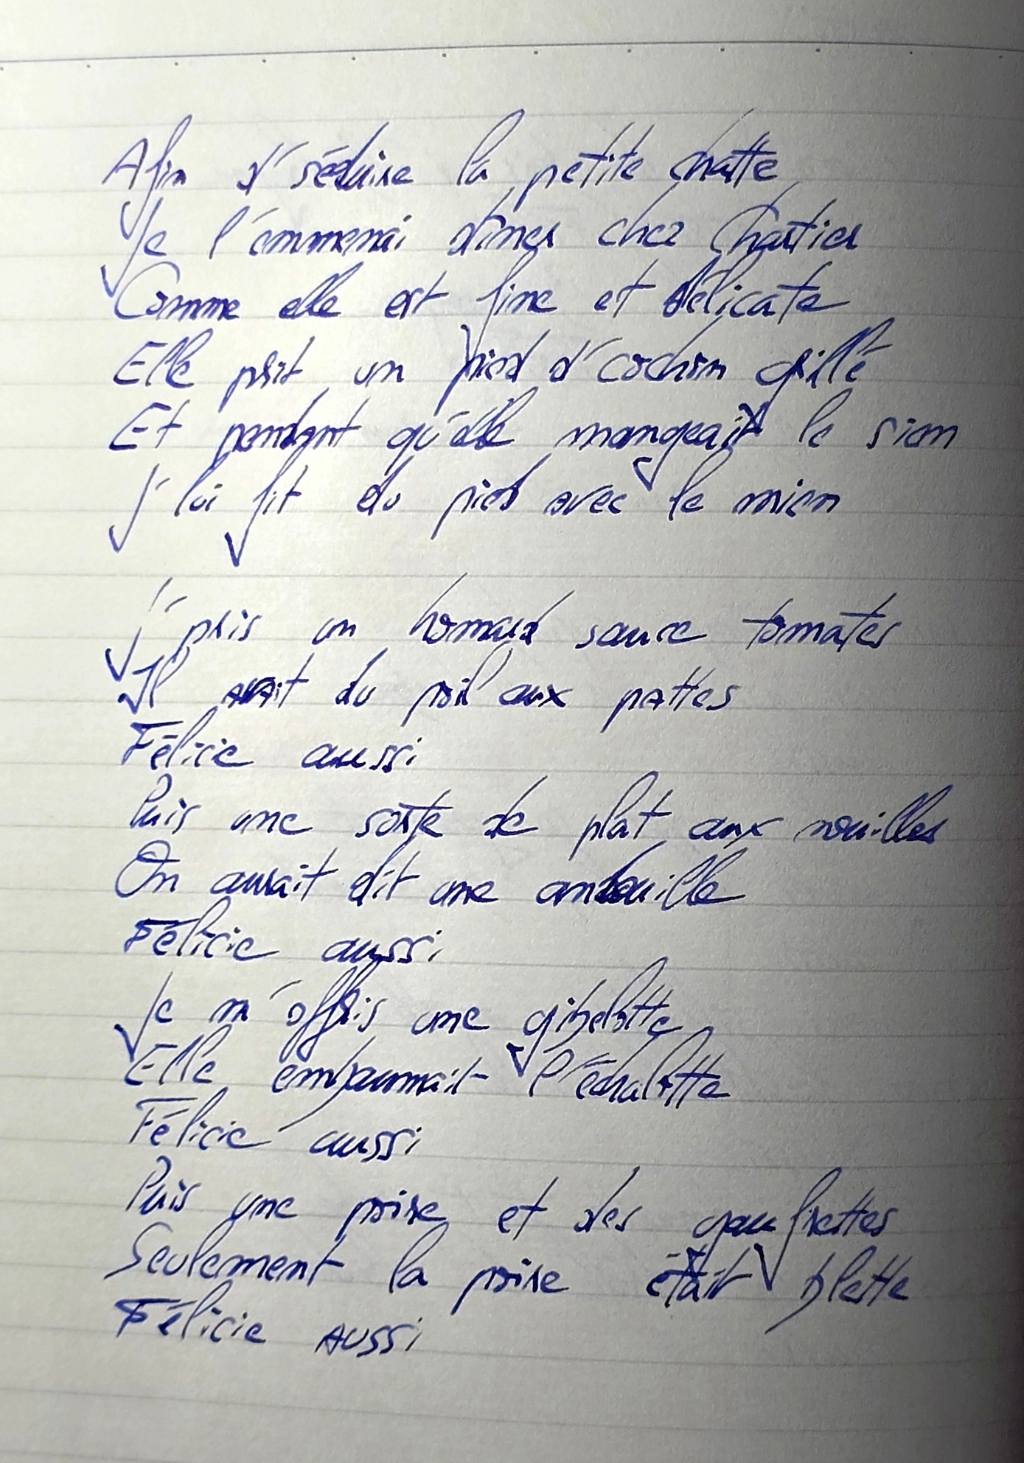 Afin d'séduire la petite chatte
Je l'emmenai dîner chez Chartier
Comme elle est fine et délicate
Elle prit un pied d'cochon grillé
Et pendant qu'elle mangeait le sien
J'lui fit du pied avec le mien
J'pris un homard sauce tomates
Il avait du poil aux pattes
Félicie aussi
Puis une sorte de plat aux nouilles
On aurait dit une andouille
Félicie aussi
Je m'offris une gibelotte
Elle embaumait l'échalotte
Félicie aussi
Puis une poire et des gaufrettes
Seulement la poire était blette
Félicie aussi